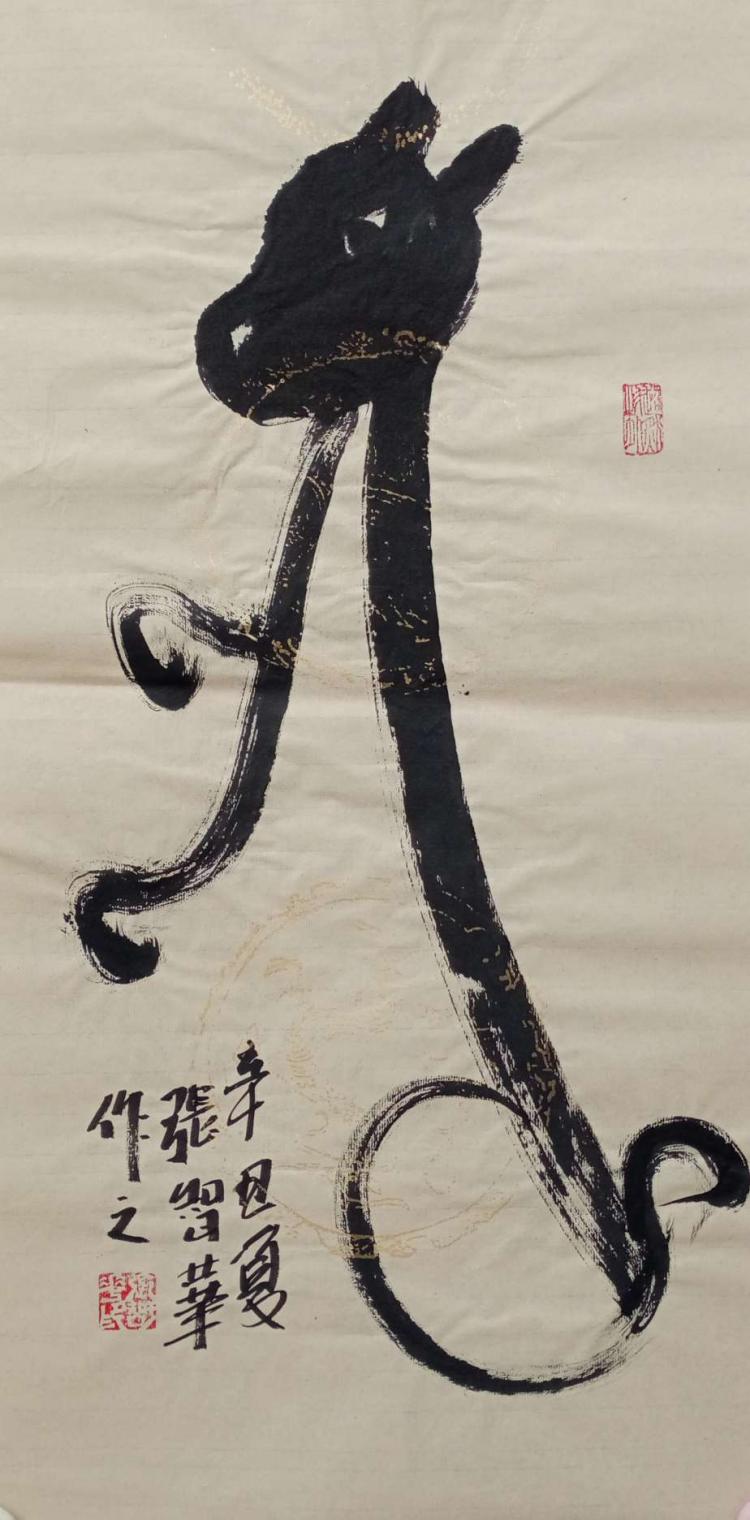 辛丑夏
張智華
作之